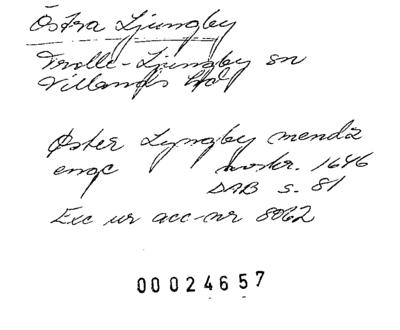 Östra Ljungby
Trolle-Ljungby sn
Villands hd
Øster Lyngby mendz
enge
mskr. 1646
DAB s. 81
Exc ur acc-nr 8062
00024657